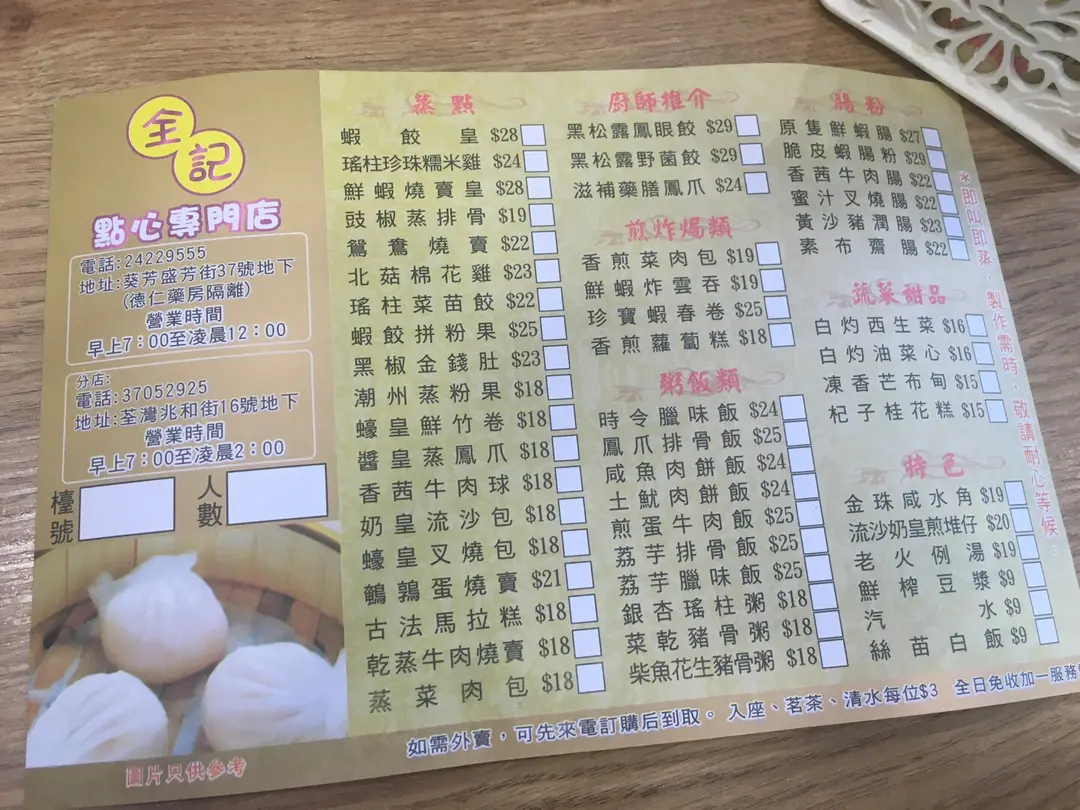 全記
點心專門店
電話:24229555
地址:葵芳盛芳街37號地下
(德仁藥房隔離)
營業時間
早上7：00至凌晨12：00
分店:
電話:37052925
地址:荃灣兆和街16號地下
營業時間
早上7：00至凌晨2：00
檯號
人數
圖片只供參考
蒸點
蝦餃皇 $28
瑤柱珍珠糯米雞 $24
鮮蝦燒賣皇 $28
豉椒蒸排骨 $19
鴛鴦燒賣 $22
北菇棉花雞 $23
瑤柱菜苗餃 $22
蝦餃拼粉果 $25
黑椒金錢肚 $23
潮州蒸粉果 $18
蠔皇鮮竹卷 $18
醬皇蒸鳳爪 $18
香茜牛肉球 $18
奶皇流沙包 $18
蠔皇叉燒包 $18
鵪鶉蛋燒賣 $21
古法馬拉糕 $18
乾蒸牛肉燒賣 $18
蒸菜肉包 $18
廚師推介
黑松露鳳眼餃 $29
黑松露野菌餃 $29
滋補藥膳鳳爪 $24
煎炸焗類
香煎菜肉包 $19
鮮蝦炸雲吞 $19
珍寶蝦春卷 $25
香煎蘿蔔糕 $18
粥飯類
時令臘味飯 $24
鳳爪排骨飯 $25
咸魚肉餅飯 $24
土魷肉餅飯 $24
煎蛋牛肉飯 $25
荔芋排骨飯 $25
荔芋臘味飯 $25
銀杏瑤柱粥 $18
菜乾豬骨粥 $18
柴魚花生豬骨粥 $18
腸粉
原隻鮮蝦腸 $27
脆皮蝦腸粉 $29
香茜牛肉腸 $22
蜜汁叉燒腸 $22
黃沙豬潤腸 $23
素布齋腸 $22
蔬菜甜品
白灼西生菜 $16
白灼油菜心 $16
凍香芒布甸 $15
杞子桂花糕 $15
特色
金珠咸水角 $19
流沙奶皇煎堆仔 $20
老火例湯 $19
鮮榨豆漿 $9
汽水 $9
絲苗白飯 $9
*即叫即蒸，製作需時，敬請耐心等候。
如需外賣，可先來電訂購后到取。 入座、茗茶、清水每位$3 全日免收加一服務